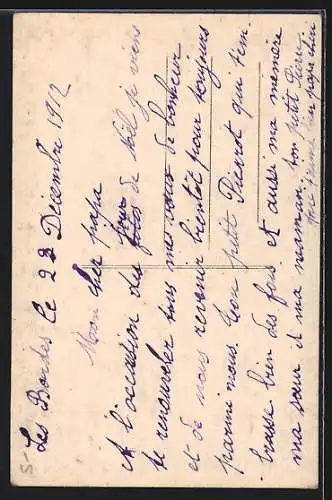 Les Bordes le 23 Décembre 1912
Mon cher papa
A l'occasion des fêtes de Noël je viens
te renouveler tous mes vœux de bonheur
et de nous revenir bientôt pour toujours
parmi nous. Ton petit Pierrot qui t'em-
brasse bien des fois et aussi ma memère
ma sœur et ma maman, ton petit Pierre
qui t'aime son papa chéri